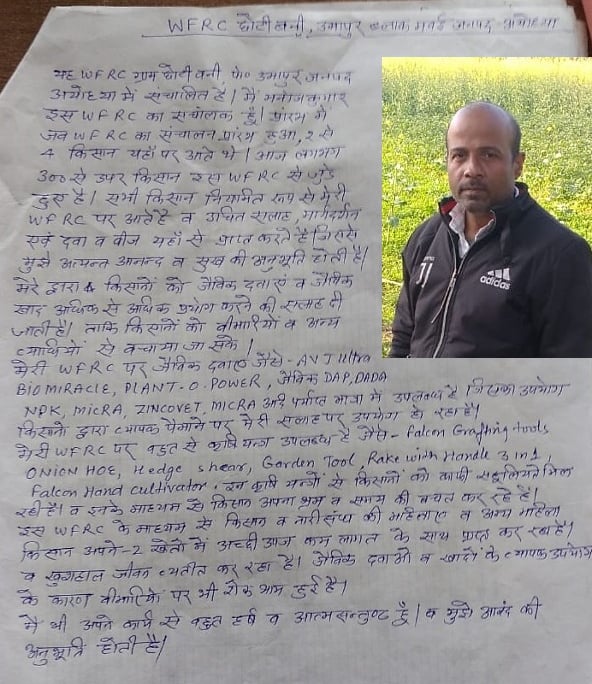 WFRC छोटीबनी, उमापुर ब्लाक मवई जनपद-अयोध्या
यह WFRC ग्राम छोटी बनी, पो० उमापुर जनपद
अयोध्या में संचालित है। मैं मनोजकुमार
इस WFRC का संचालक हूँ। प्रारंभ में
जब WFRC का संचालन प्रारंभ हुआ, 2 से
4 किसान यहाँ पर आते थे। आज लगभग
300 से उपर किसान इस WFRC से जुड़े
हुए है। सभी किसान नियमित रूप से मेरी
WFRC पर आते है व उचित सलाह, मार्गदर्शन
एवं दवा व बीज यहाँ से प्राप्त करते है जिससे
मुझे अत्यन्त आनन्द व सुख की अनुभूति होती है।
मेरे द्वारा किसानों को जैविक दवाएं व जैविक
खाद अधिक से अधिक प्रयोग करने की सलाह दी
जाती है। ताकि किसानों को बीमारियों व अन्य
व्याधियों से बचाया जा सके।
मेरी WFRC पर जैविक दवाएं जैसे - AVJ Ultra
BIO MIRACLE, PLANT-O-POWER, जैविक DAP, DADA
NPK, MICRA, ZINCOVET, MICRA आदि पर्याप्त मात्रा में उपलब्ध है जिसका उपयोग
किसानों द्वारा व्यापक पैमाने पर मेरी सलाह पर उपयोग हो रहा है।
मेरी WFRC पर बहुत से कृषि यन्त्र उपलब्ध है जैसे - Falcon Grafting tools
ONION HOE, Hedge shear, Garden Tool, Rake with Handle 3 in 1,
Falcon Hand cultivator. इन कृषि यन्त्रों से किसानों को काफी सहूलियते मिल
रही है। व इनके माध्यम से किसान अपना श्रम व समय की बचत कर रहे है।
इस WFRC के माध्यम से किसान व नारीसंघा की महिलाए व अन्य महिला
किसान अपने-2 खेतों में अच्छी उपज कम लागत के साथ प्राप्त कर रहा है।
व खुशहाल जीवन व्यतीत कर रहा है। जैविक दवाओं व खादों के व्यापक उपयोग
के कारण बीमारियों पर भी रोक थाम हुई है।
मैं भी अपने कार्य से बहुत हर्ष व आत्मसन्तुष्ट हूँ। व मुझे आनंद की
अनुभूति होती है।
adidas